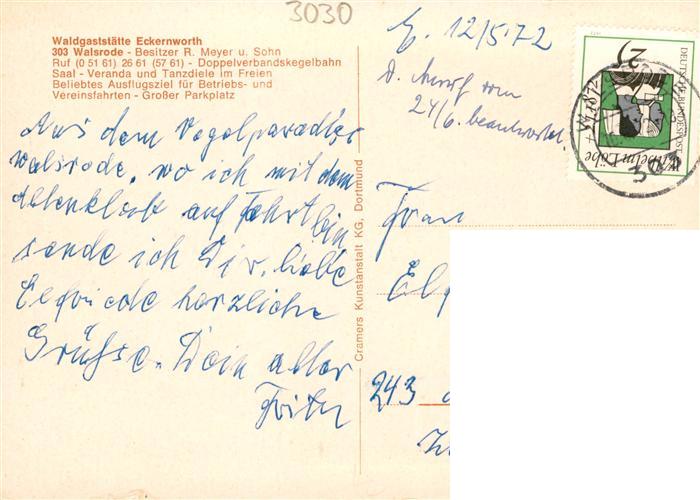 3030
Waldgaststätte Eckernworth
303 Walsrode - Besitzer R. Meyer u. Sohn
Ruf (0 51 61) 26 61 (57 61) - Doppelverbandskegelbahn
Saal - Veranda und Tanzdiele im Freien
Beliebtes Ausflugsziel für Betriebs- und
Vereinsfahrten - Großer Parkplatz
Aus dem Vogelparadies
Walsrode, wo ich mit dem
Altenklub auf Fahrt bin
sende ich Dir, liebe
Elfriede herzliche
Grüße. Dein alter
Fritz
Cramers Kunstanstalt KG, Dortmund
E. 12/5 72
24/6. beantwortet.
DEUTSCHE BUNDESPOST
25
Wilhelm Löbe
Frau
243